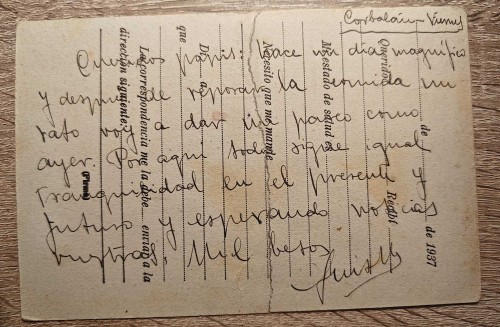 Corbalán - Viernes
Queridos papis: Hace un día magnífico
y después de reposar la comida un
rato voy a dar un paseo como
ayer. Por aquí todo sigue igual
tranquilidad en el presente y
futuro y esperando noticias
vuestras. Mil besos
de 1937
de
Recibí
Querido
Mi estado de salud
Necesito que me mande
Di a
que
La correspondencia me la debe enviar a la
dirección siguiente:
(Firma)